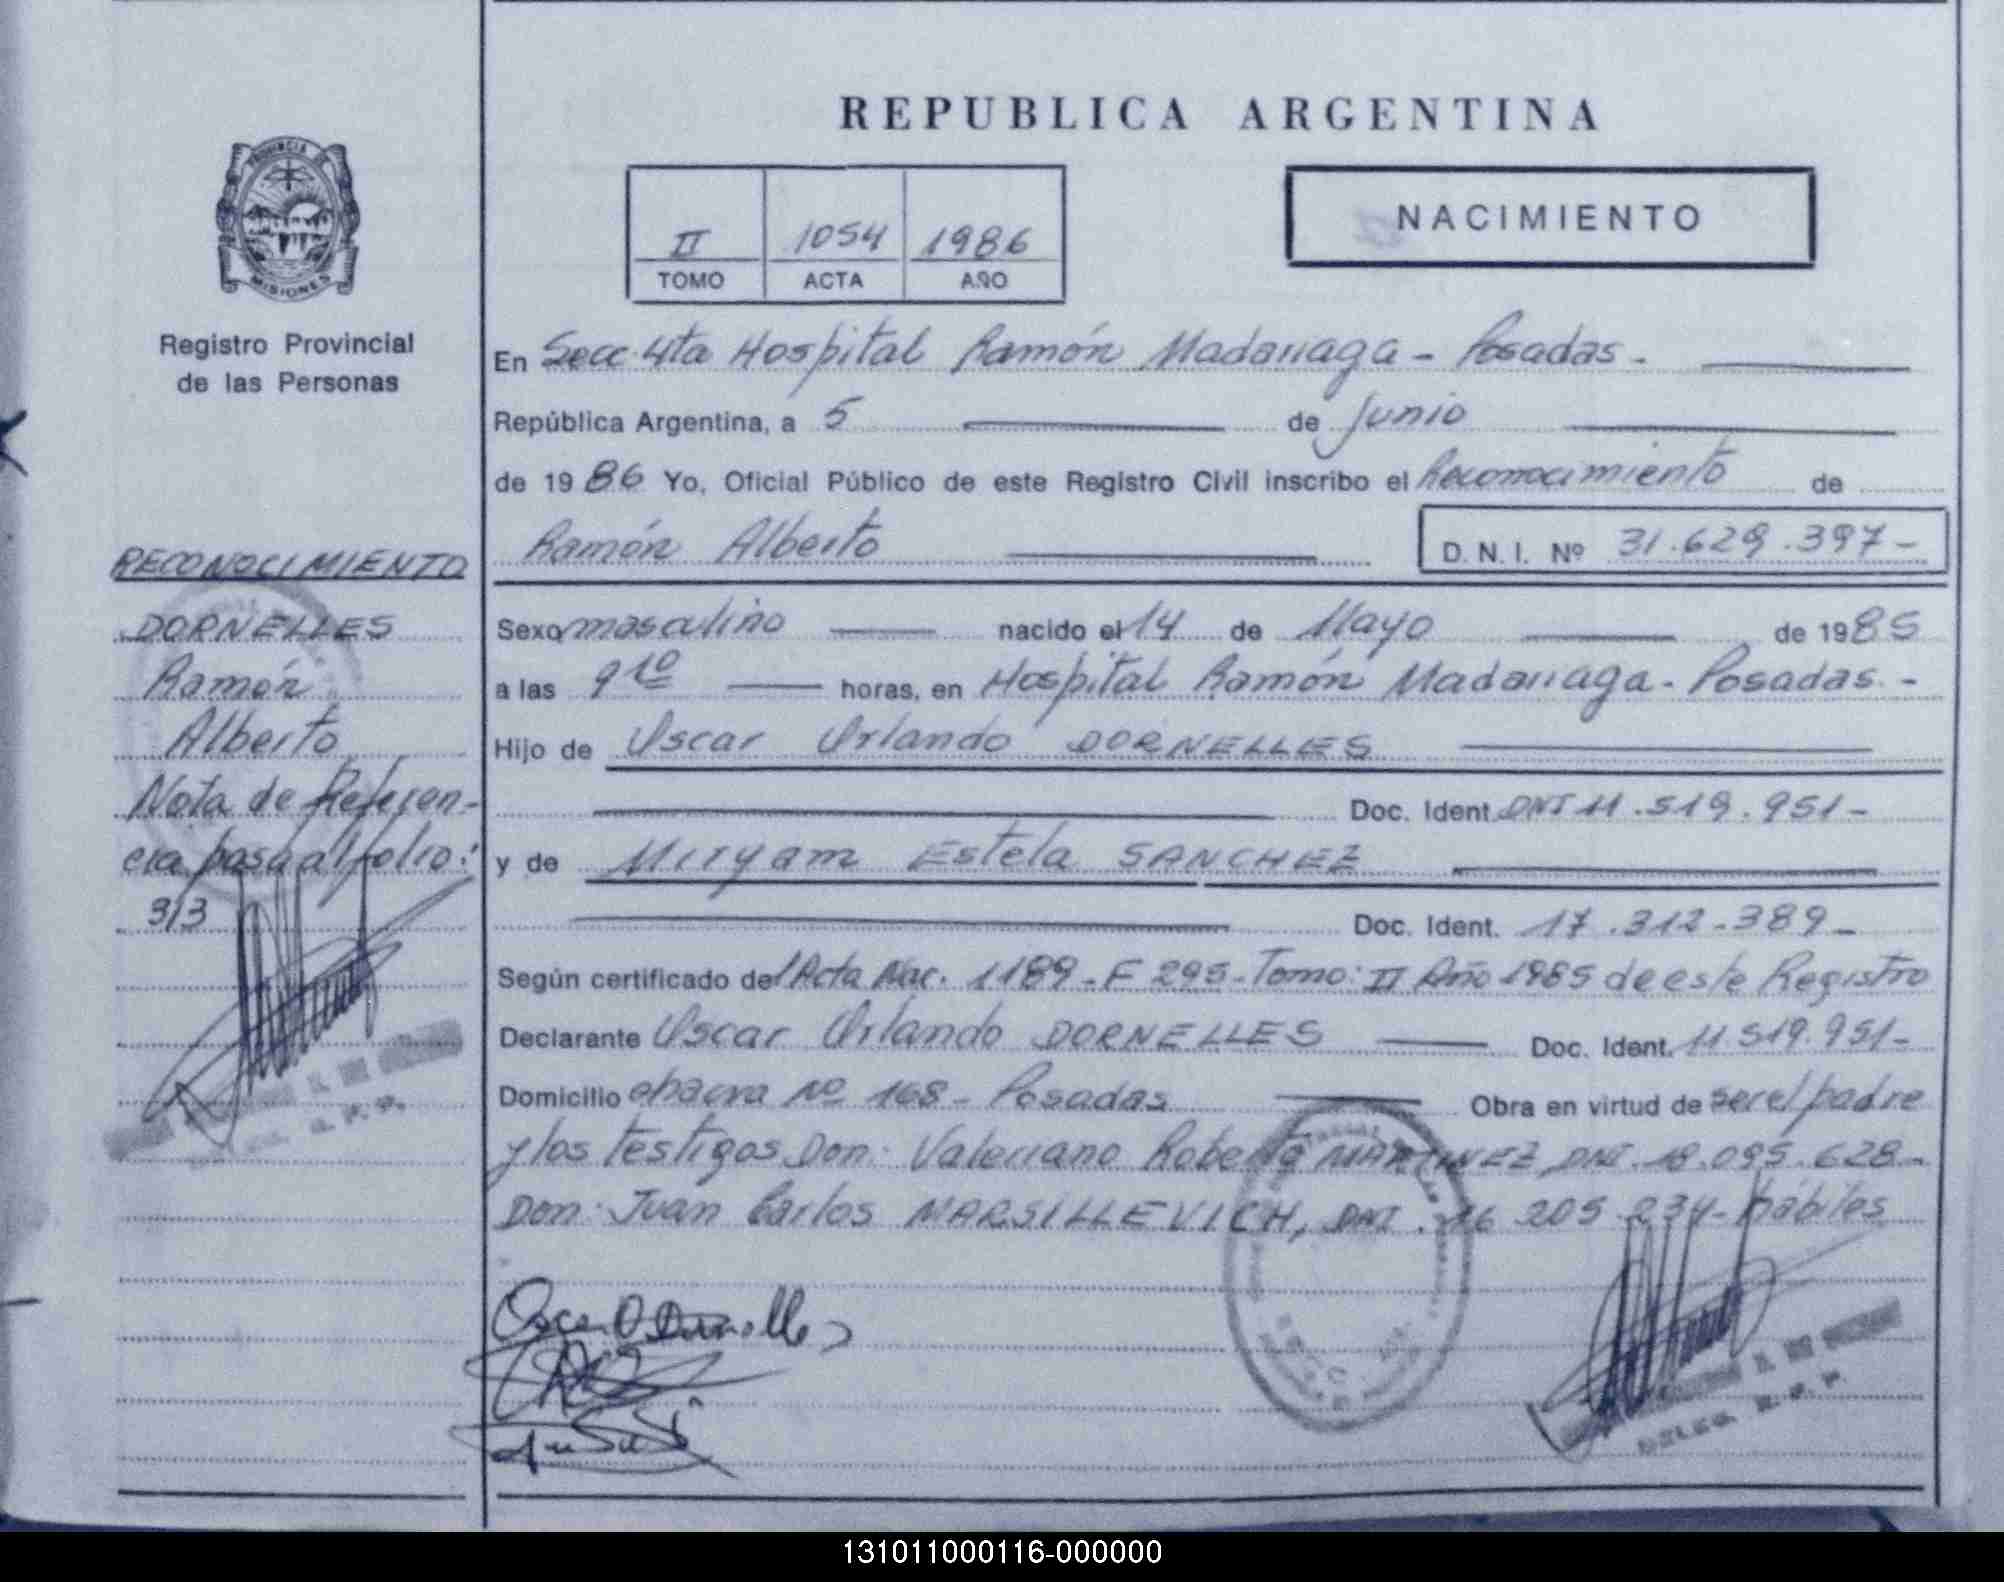 REPUBLICA ARGENTINA
PROVINCIA DE
MISIONES
Registro Provincial
de las Personas
II 1054 1986
TOMO ACTA AÑO
NACIMIENTO
En Secc. 4ta Hospital Ramón Madariaga - Posadas -
República Argentina, a 5 de Junio
de 1986 Yo, Oficial Público de este Registro Civil inscribo el Reconocimiento de
Ramón Alberto D. N. I. Nº 31.629.397-
Sexo masculino nacido el 14 de Mayo de 1985
a las 9 10 horas, en Hospital Ramón Madariaga - Posadas. -
Hijo de Oscar Orlando DORNELLES
Doc. Ident. DNI 11.519.951-
y de Miryam Estela SANCHEZ
Doc. Ident. 17.312.389-
Según certificado del Acta Nac. 1189 - F 295 - Tomo: II Año 1985 de este Registro
Declarante Oscar Orlando DORNELLES Doc. Ident. 11.519.951-
Domicilio chacra Nº 168 - Posadas Obra en virtud de ser el padre
y los testigos Don: Valeriano Roberto MARTINEZ, DNI. 18.095.628-
Don: Juan Carlos MARSILLEVICH, DNI. 16.205.234- hábiles
RECONOCIMIENTO
DORNELLES
Ramón
Alberto
Nota de Referen-
cia pasa al folio:
313
131011000116-000000